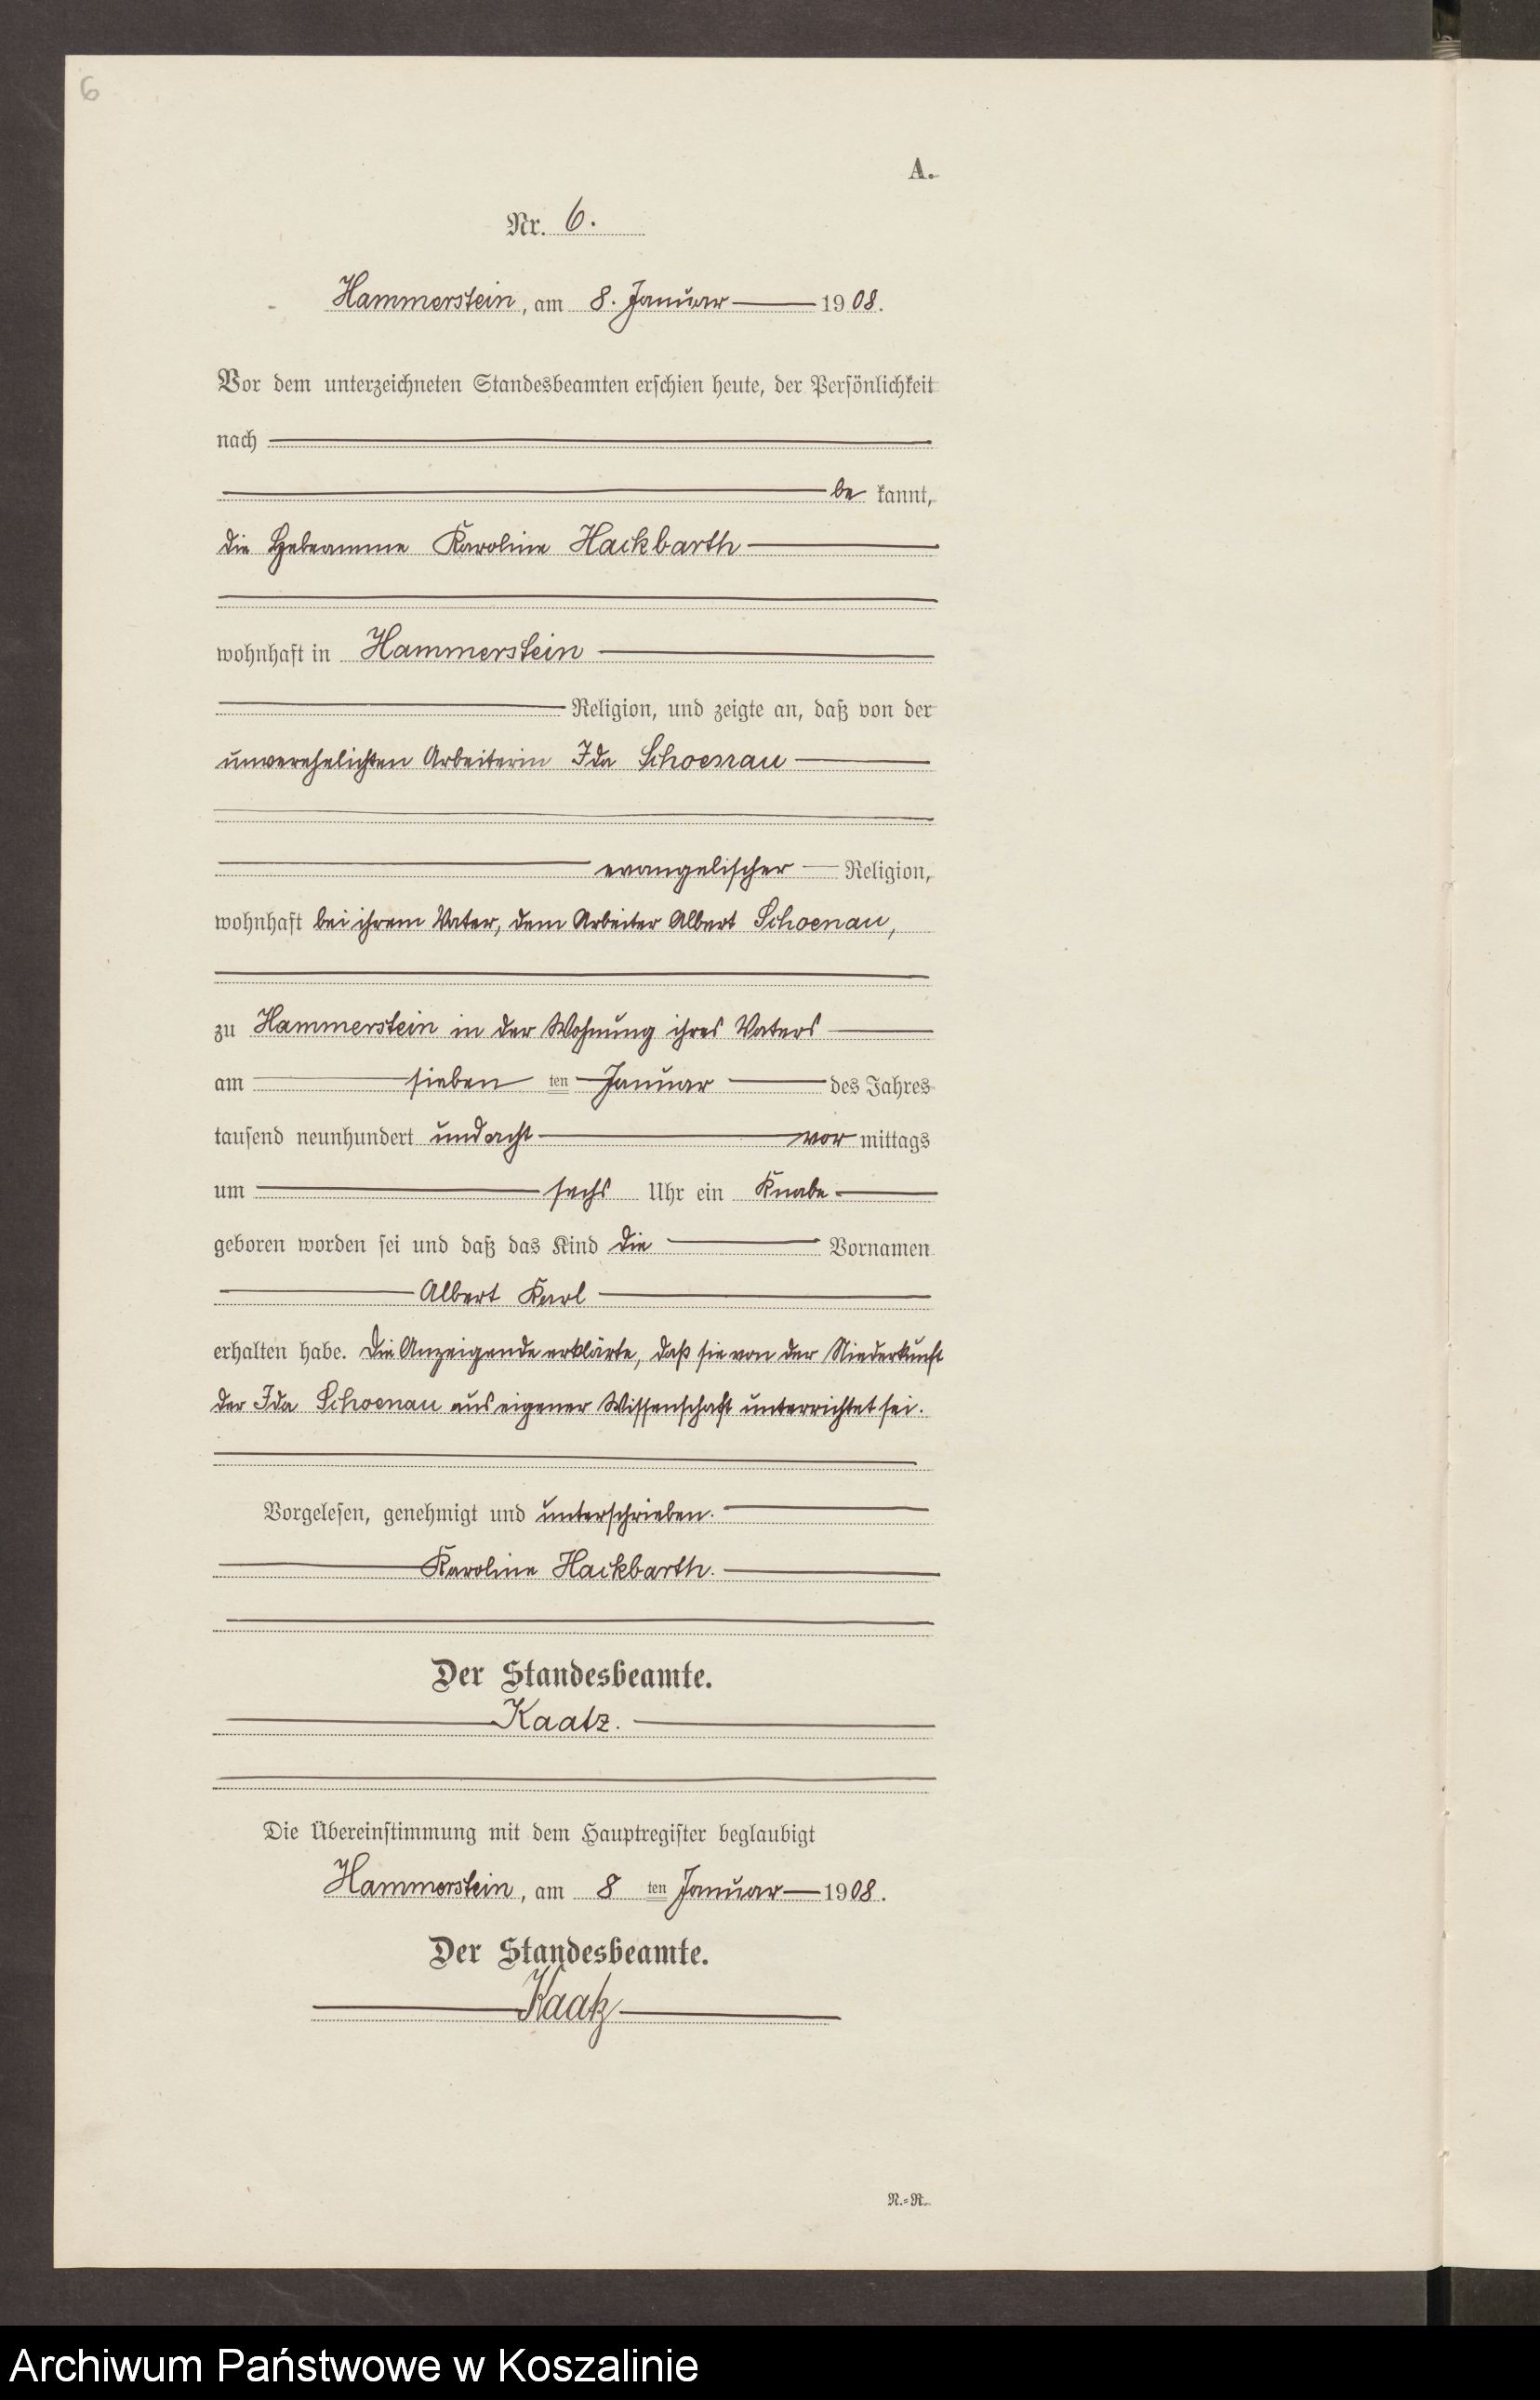 6
A.
Nr. 6.
Hammerstein, am 8. Januar 1908.
Vor dem unterzeichneten Standesbeamten erschien heute, der Persönlichkeit
nach
be kannt,
die Hebeamme Karoline Hackbarth
wohnhaft in Hammerstein
Religion, und zeigte an, daß von der
unverehelichten Arbeiterin Ida Schoenau
evangelischer Religion,
wohnhaft bei ihrem Vater, dem Arbeiter Albert Schoenau,
zu Hammerstein in der Wohnung ihres Vaters
am sieben ten Januar des Jahres
tausend neunhundert und acht vor mittags
um sechs Uhr ein Knabe
geboren worden sei und daß das Kind die Vornamen
Albert Karl
erhalten habe. Die Anzeigende erklärte, daß sie von der Niederkunft
der Ida Schoenau aus eigener Wissenschaft unterrichtet sei.
Vorgelesen, genehmigt und unterschrieben.
Karoline Hackbarth.
Der Standesbeamte.
Kaatz.
Die Übereinstimmung mit dem Hauptregister beglaubigt
Hammerstein, am 8 ten Januar 1908.
Der Standesbeamte.
Kaatz
N.=R.
Archiwum Państwowe w Koszalinie